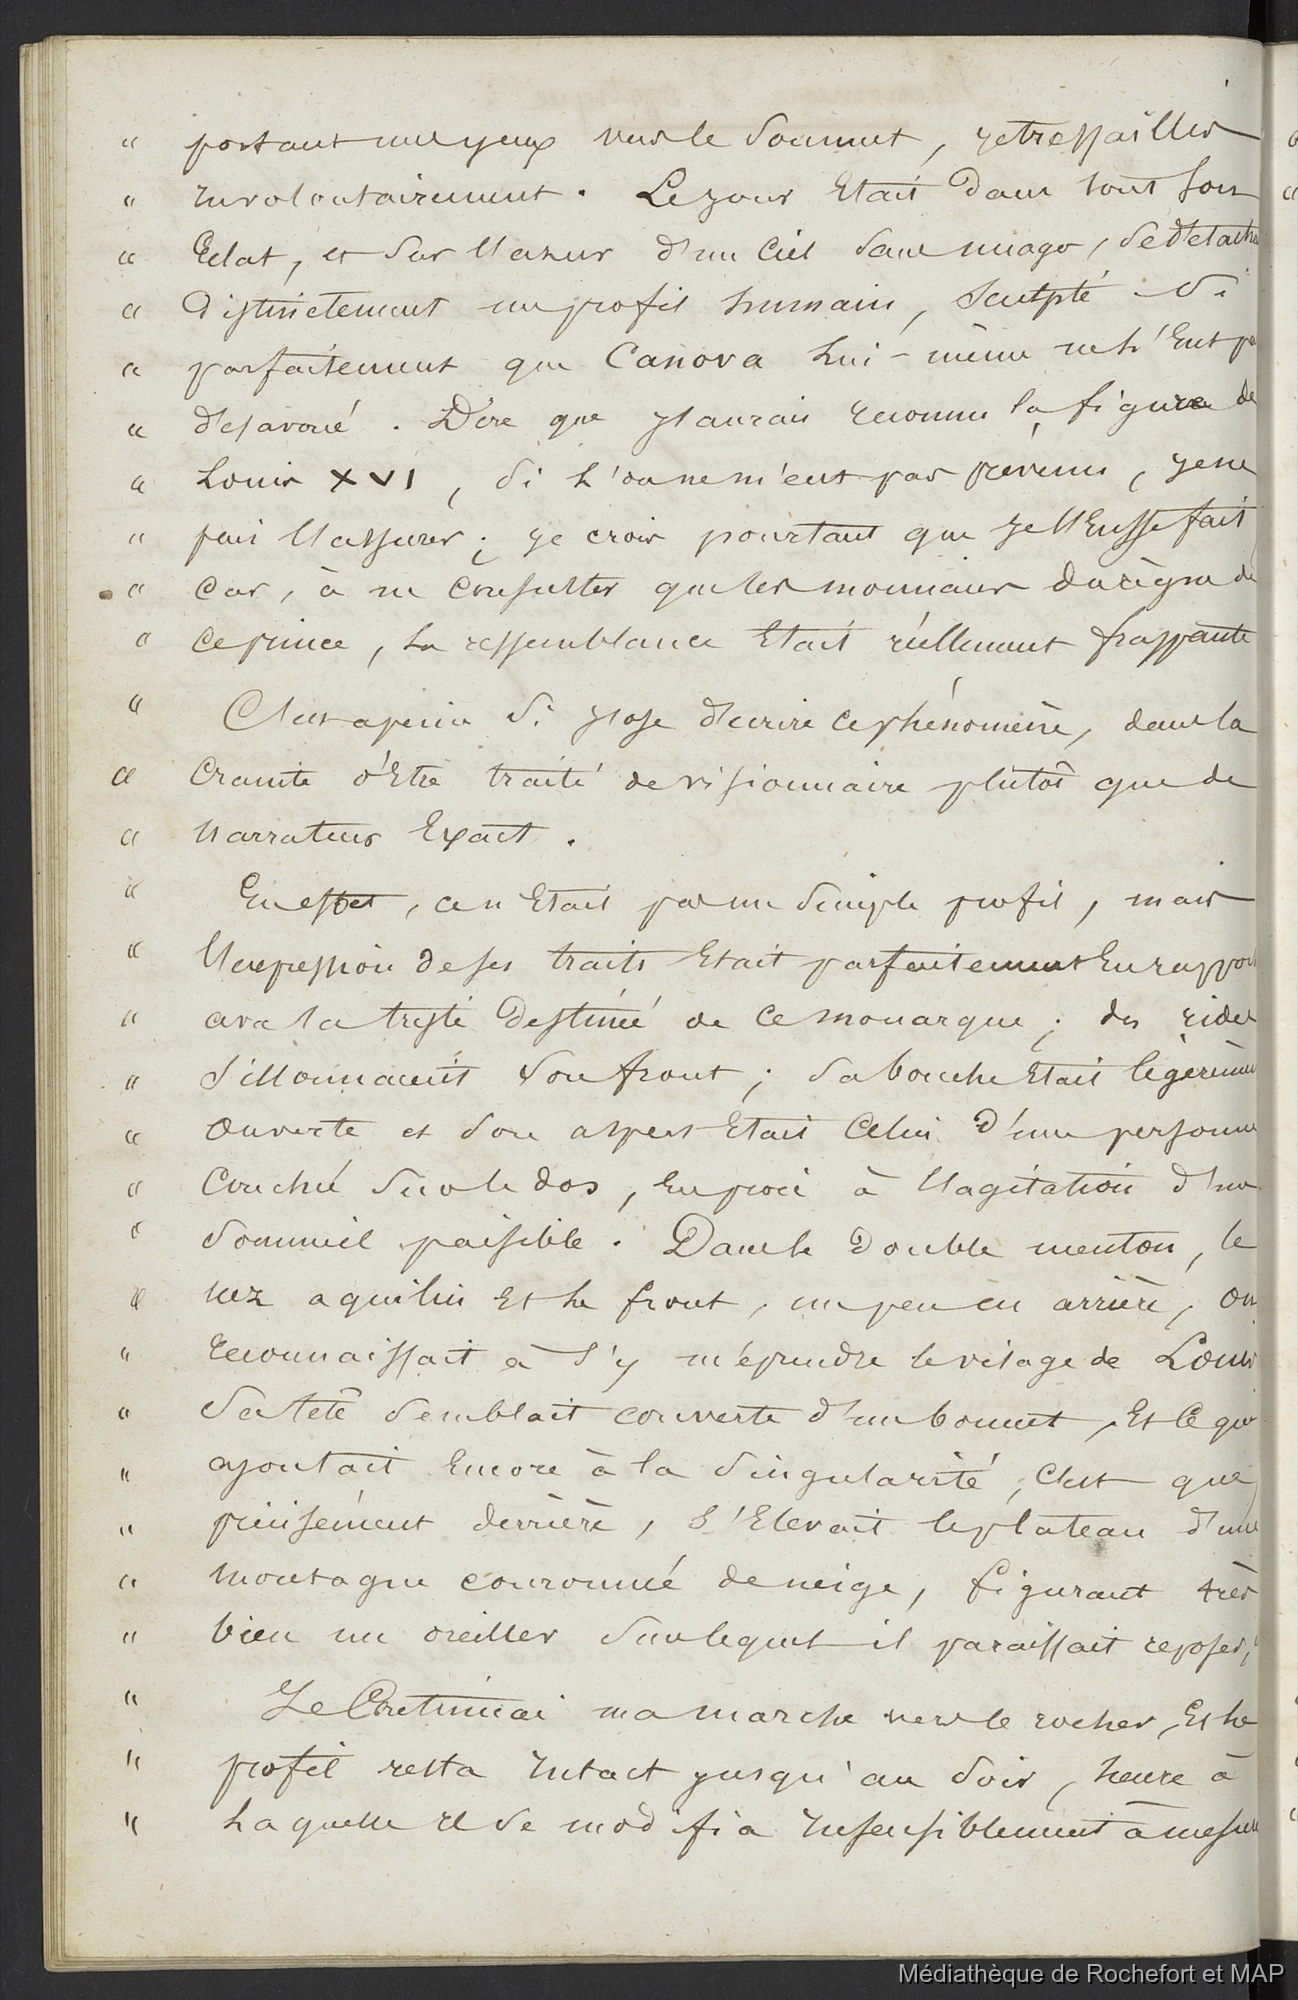 " portant mes yeux vers le sommet, je tressaillis
" involontairement. Le jour était dans tout son
" éclat, et sur l'azur d'un ciel sans nuage, se détacha
" distinctement un profil humain, sculpté si
" parfaitement que Canova lui-même ne l'eut pas
" désavoué. Dire que j'aurais reconnu la figure de
" Louis XVI, si l'on ne m'eut pas prévenu, je ne
" puis l'assurer ; je crois pourtant que je l'eusse fait
" car, à ne consulter que les monnaies du règne de
" ce prince, la ressemblance était réellement frappante
" C'est à peine si j'ose décrire ce phénomène, dans la
" crainte d'être traité de visionnaire plutôt que de
" narrateur exact.
" En effet, ce n'était pas un simple profil, mais
" l'expression de ses traits était parfaitement en rapport
" avec la triste destinée de ce monarque ; des rides
" sillonnaient son front ; sa bouche était légèrement
" ouverte et son aspect était celui d'une personne
" couchée sur le dos, en proie à l'agitation d'un
" sommeil paisible. Dans le double menton, le
" nez aquilin et le front, un peu en arrière, on
" reconnaissait à s'y méprendre le visage de Louis
" Sa tête semblait couverte d'un bonnet, et ce qui
" ajoutait encore à la singularité, c'est que
" précisément derrière, s'élevait le plateau d'une
" montagne couronné de neige, figurant très
" bien un oreiller sur lequel il paraissait reposer,
" Je continuai ma marche vers le rocher, et le
" profil resta intact jusqu'au soir, heure à
" laquelle il se modifia insensiblement à mesure
Médiathèque de Rochefort et MAP